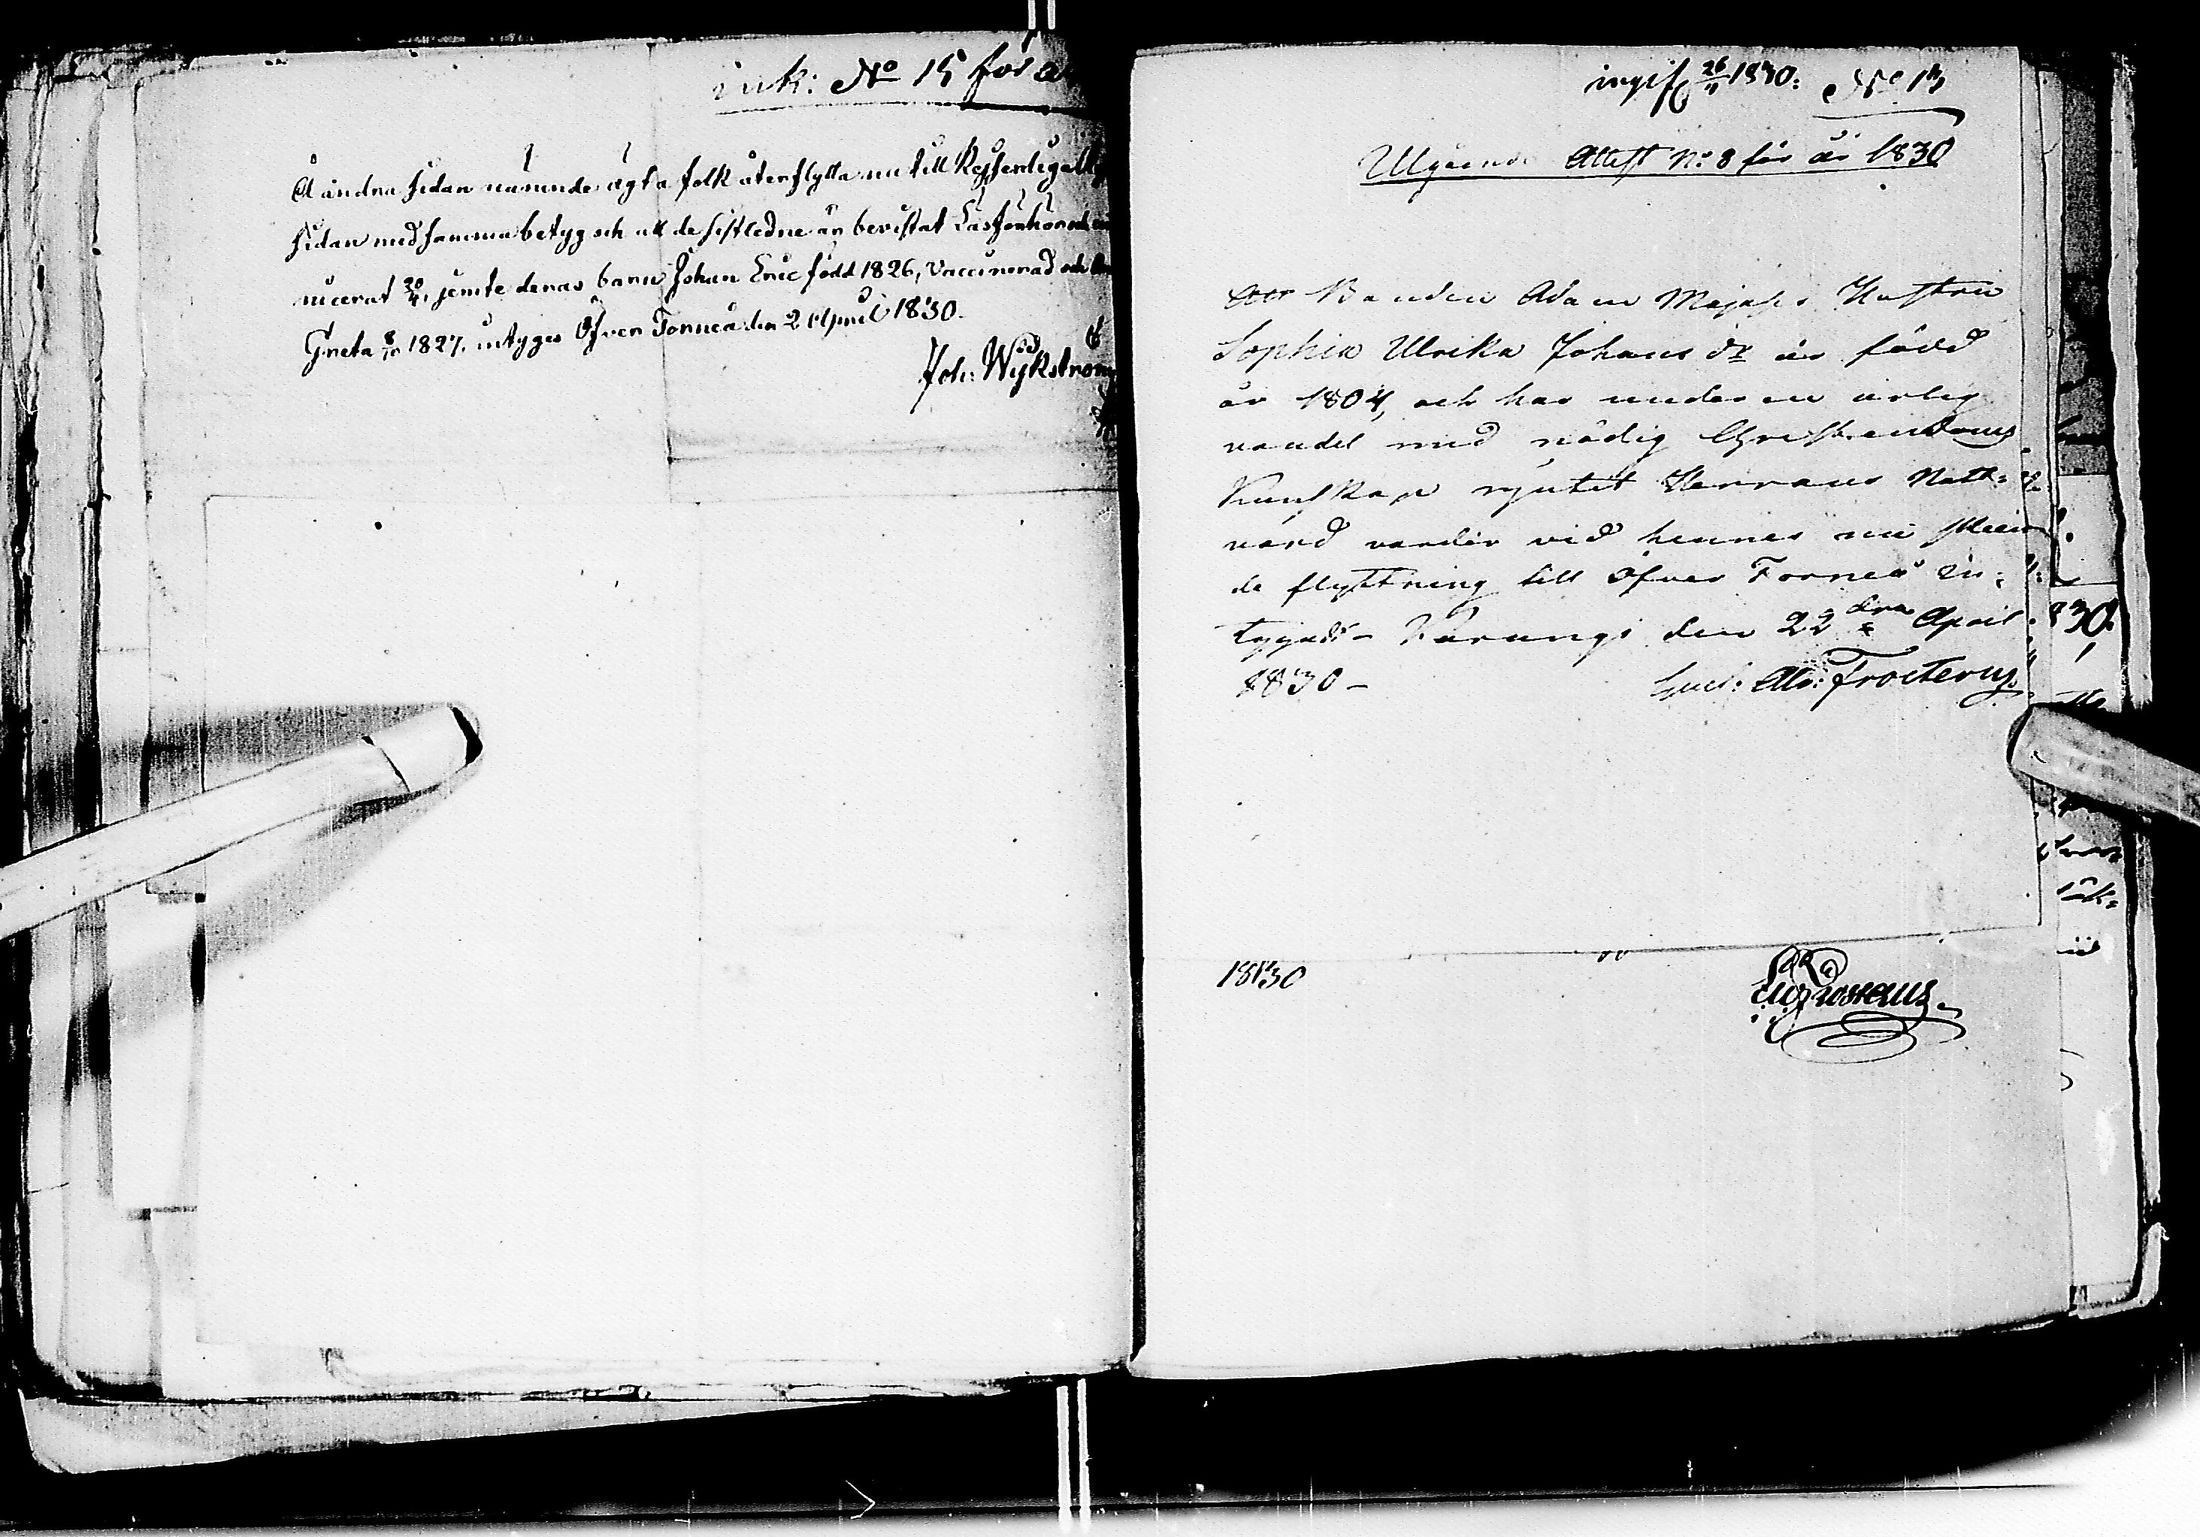 ink: No 15 för å
Å andra sidan nämnde ägta folk återflytta nu till
sidan med samma betyg och att de sistledne år bevistat Läsförhör och
nicerat 20/4, jemte deras barn Johan Eric född 1826, Vaccinerad och
Greta 8/10 1827, intygar Öfver Torneå den 2 April 1830.
Joh: Wijkström
ingif 26/4 1830. No 13
Utgående Attest No 8 för år 1830
Att Bonden Adam Hustru
Sophia Ulrika Johans dr är född
år 1804, och har under en ärlig
vandel med nödig Christendoms
Kunskap njutit Herrans Natt=
vard varder vid hennes nu skeen
de flyttning till Öfver Torneå in=
tygadt – Karungi den 22 dra April
1830 –
Frosterus
1830